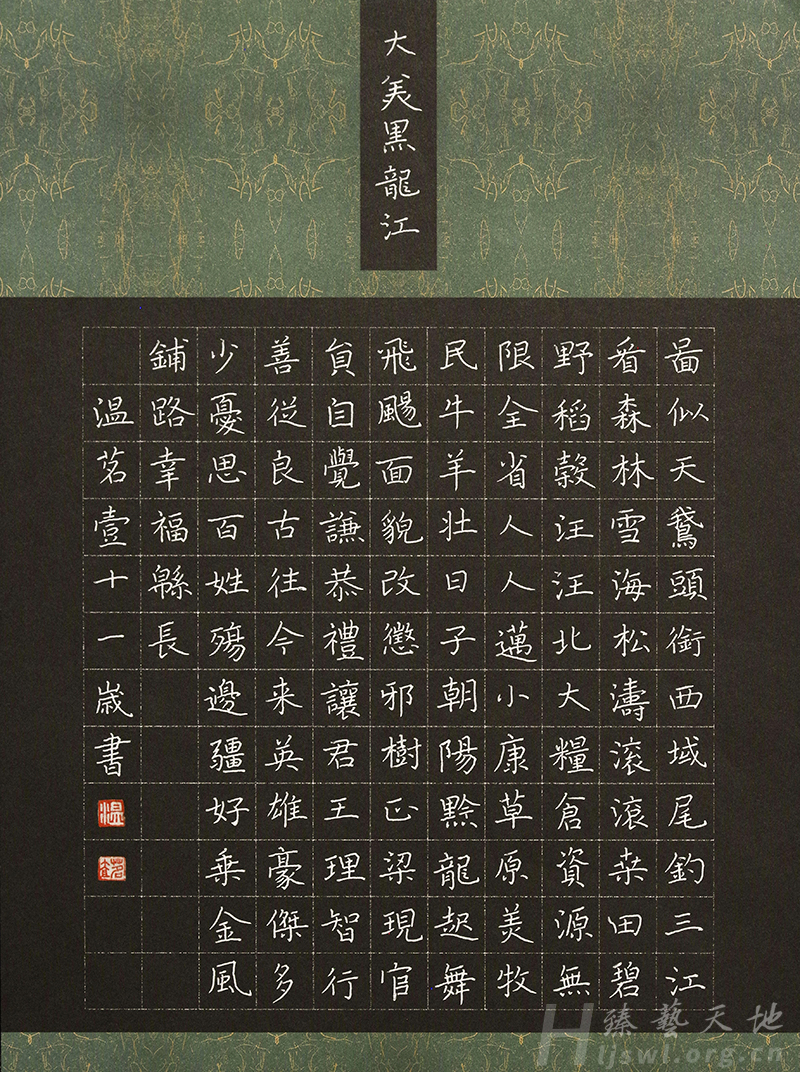 大美黑龍江
啚似天鵞頭銜西域尾釣三江
看森林雪海松濤滚滚桒田碧
野稻穀汪汪北大糧倉資源無
限全省人人邁小康草原美牧
民牛羊壮日子朝陽黔龍起舞
飛颺面貌改懲邪樹正梁現官
貟自覺謙恭禮讓君王理智行
善從良古往今来英雄豪傑多
少憂思百姓殤邊疆好乗金風
鋪路幸福緜長
温茗壹十一歲書
温
茗壹
臻藝天地
Hljswl.org.cn